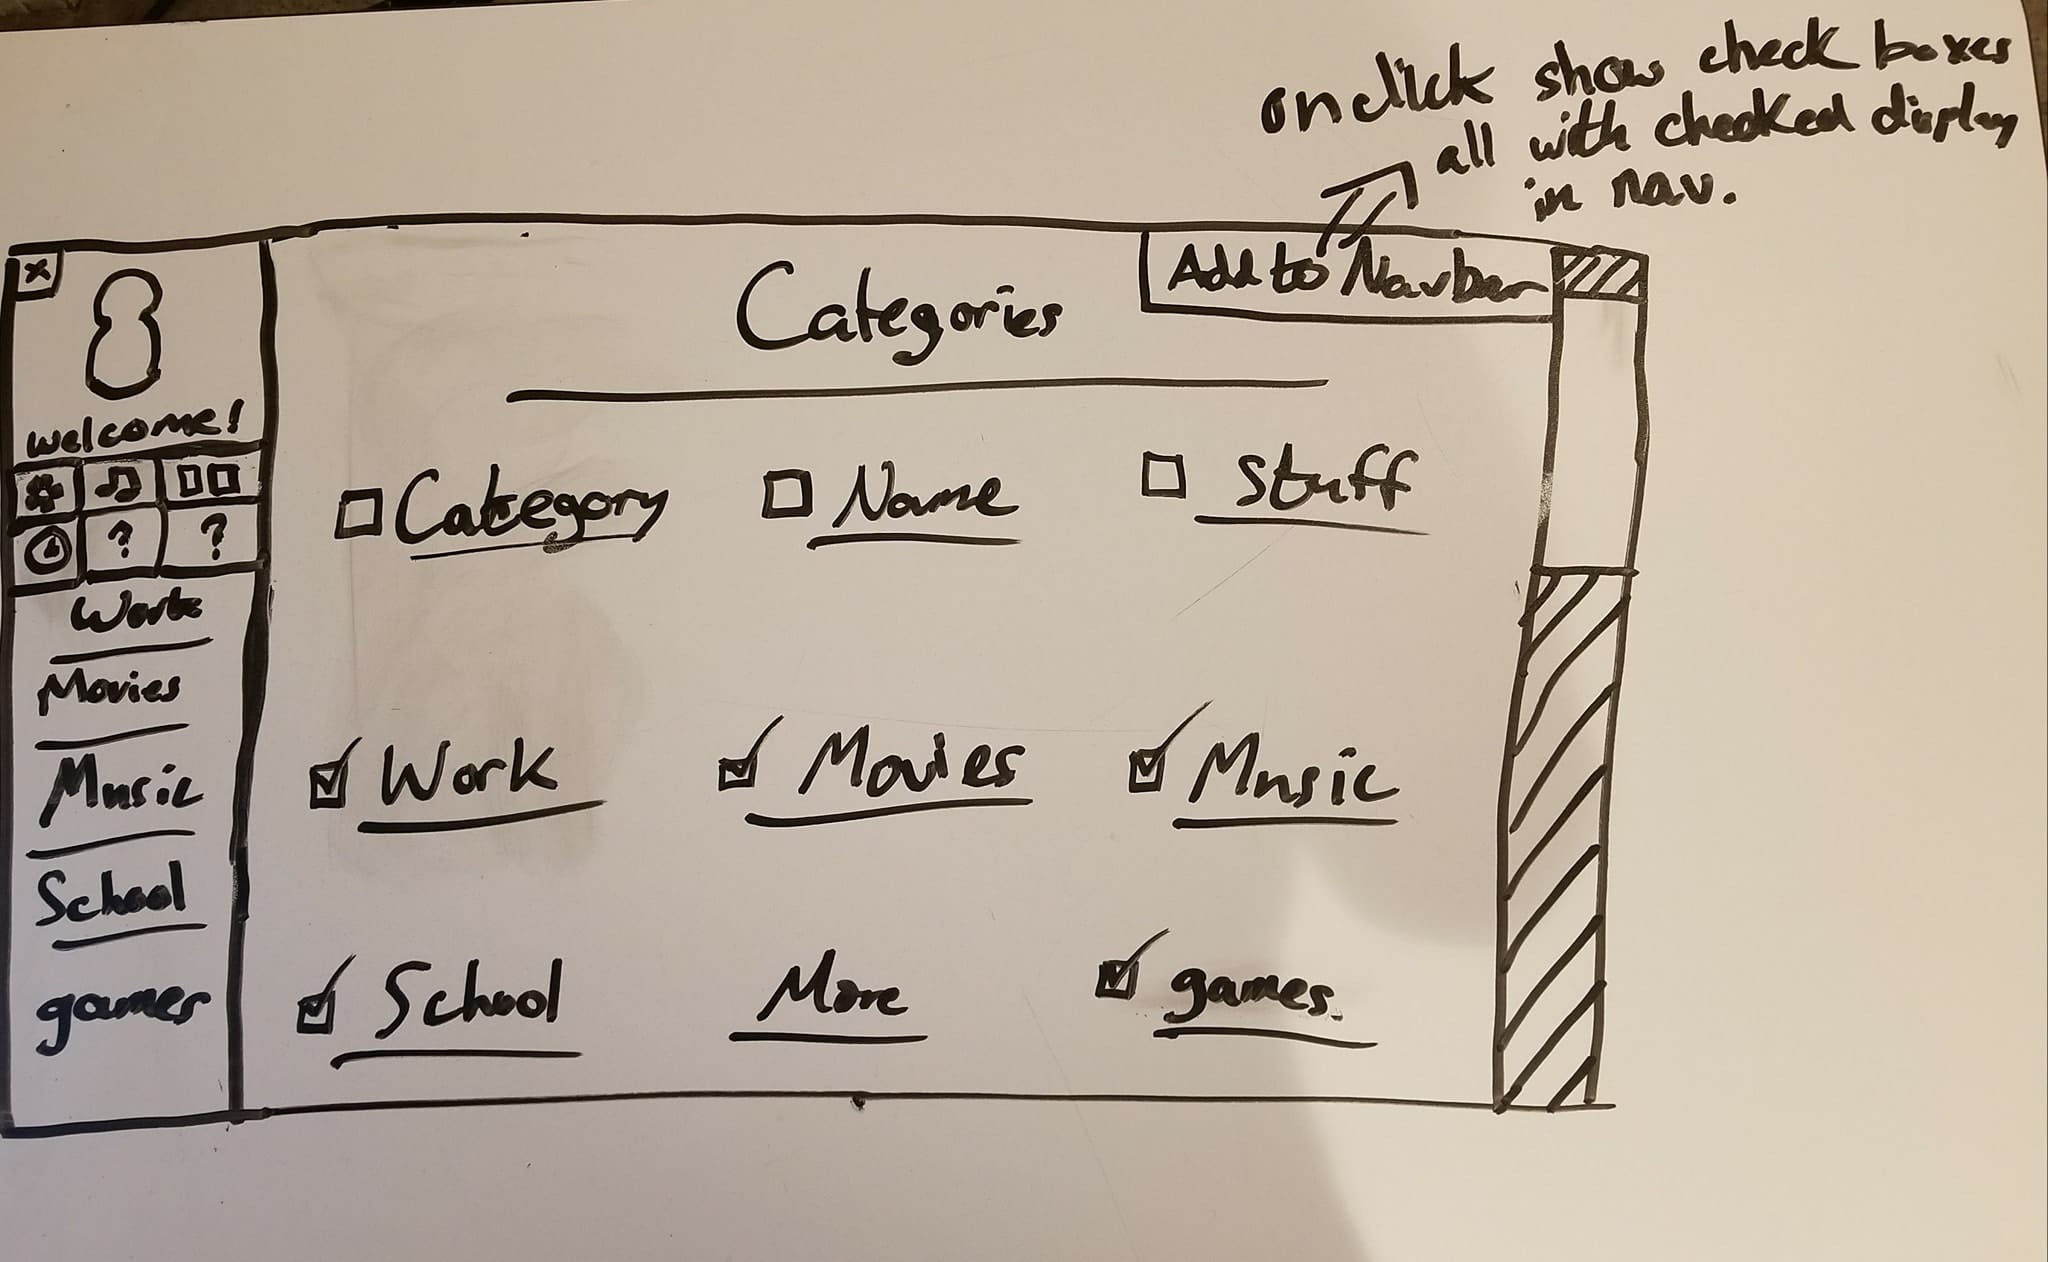 onclick show check boxes
all with checked display
in nav.
Add to Navbar
Categories
x
welcome!
? ?
Work
Movies
Music
School
games
Category Name Stuff
Work Movies Music
School More games.